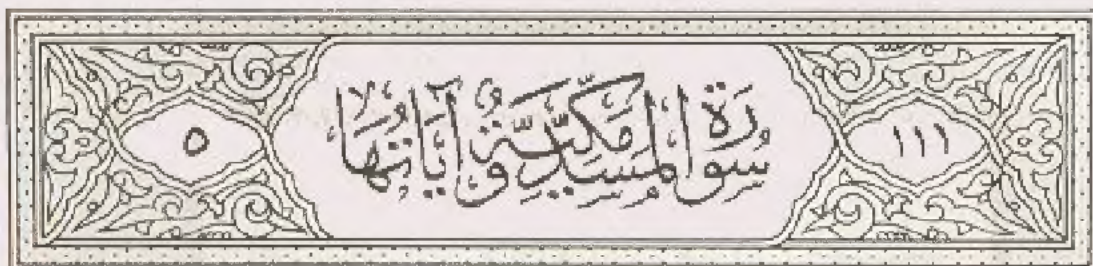 ١١١ سُورَةُ الْمَسَدِ مَكِّيَّةٌ وَآيَاتُهَا ٥